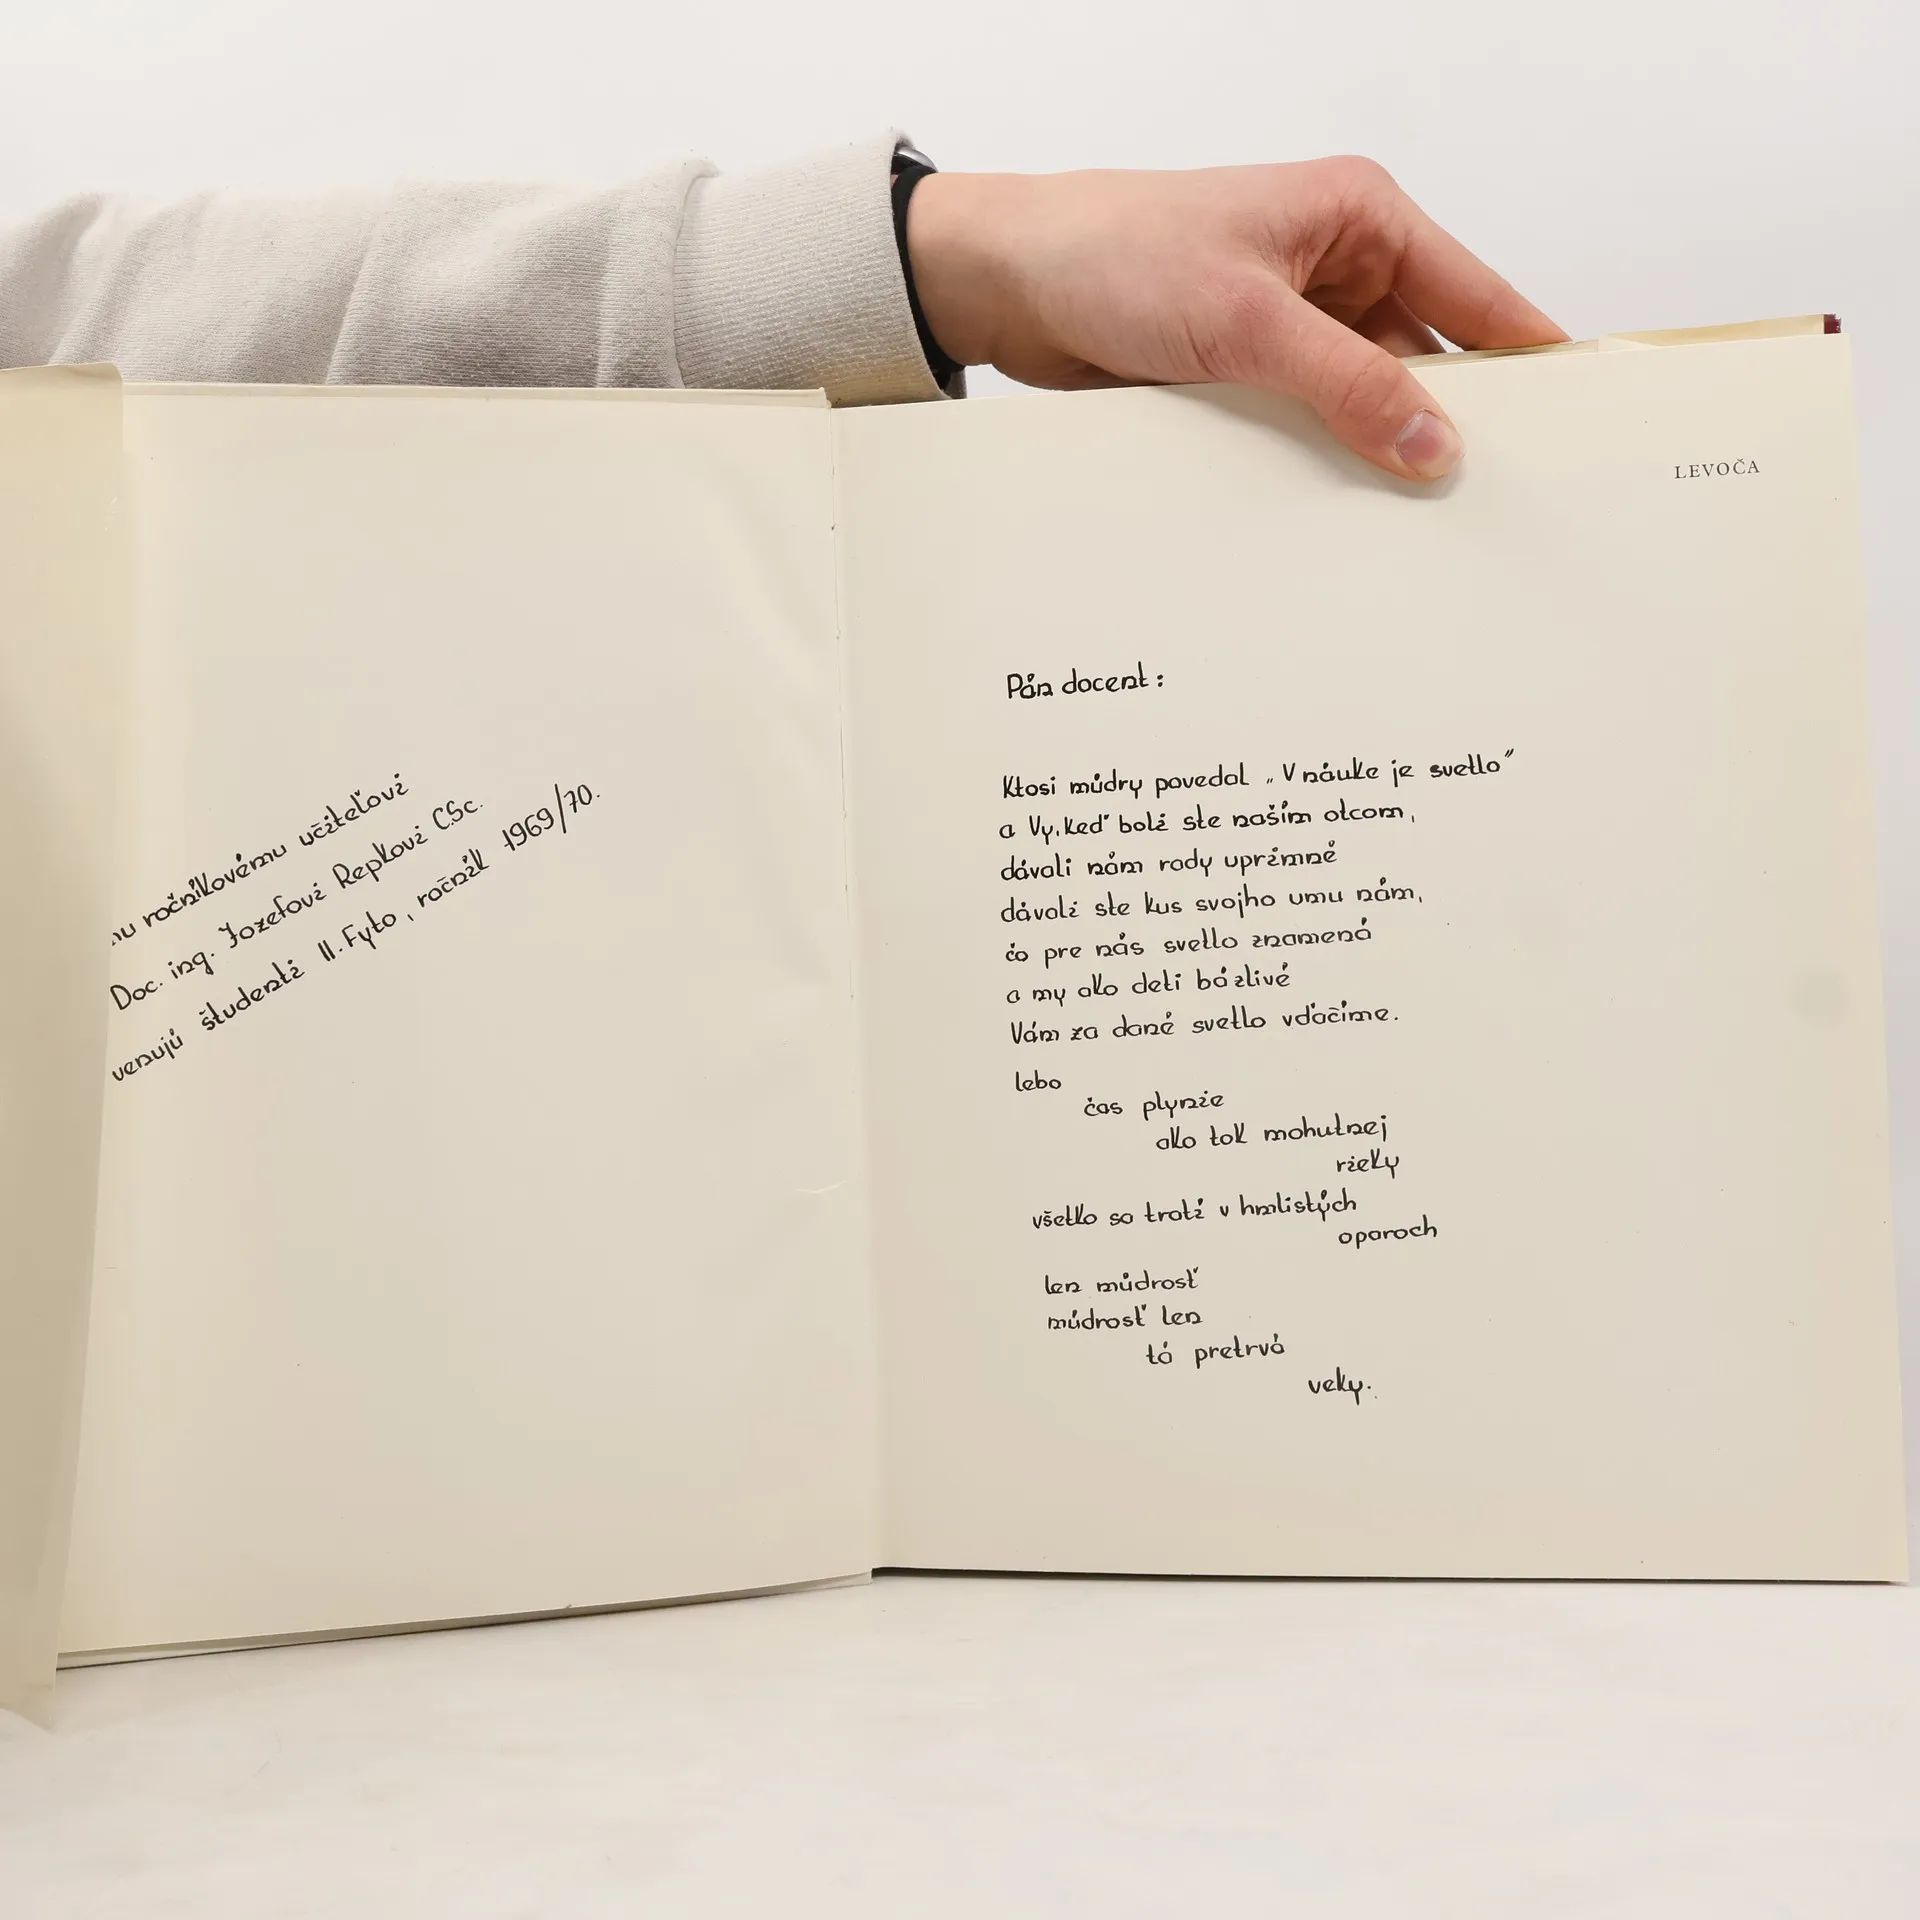 ročníkovému učiteľovi
Doc. ing. Jozefovi Repkovi CSc.
venujú študenti II. Fyto, ročník 1969/70.
LEVOČA
Pán docent:
Ktosi múdry povedal „V náuke je svetlo"
a Vy, keď boli ste naším otcom,
dávali nám rady úprimné
dávali ste kus svojho umu nám,
čo pre nás svetlo znamená
a my ako deti bázlivé
Vám za dané svetlo vďačíme.
lebo
čas plynie
ako tok mohutnej
rieky
všetko sa tratí v hmlistých
oparoch
len múdrosť
múdrosť len
tá pretrvá
veky.